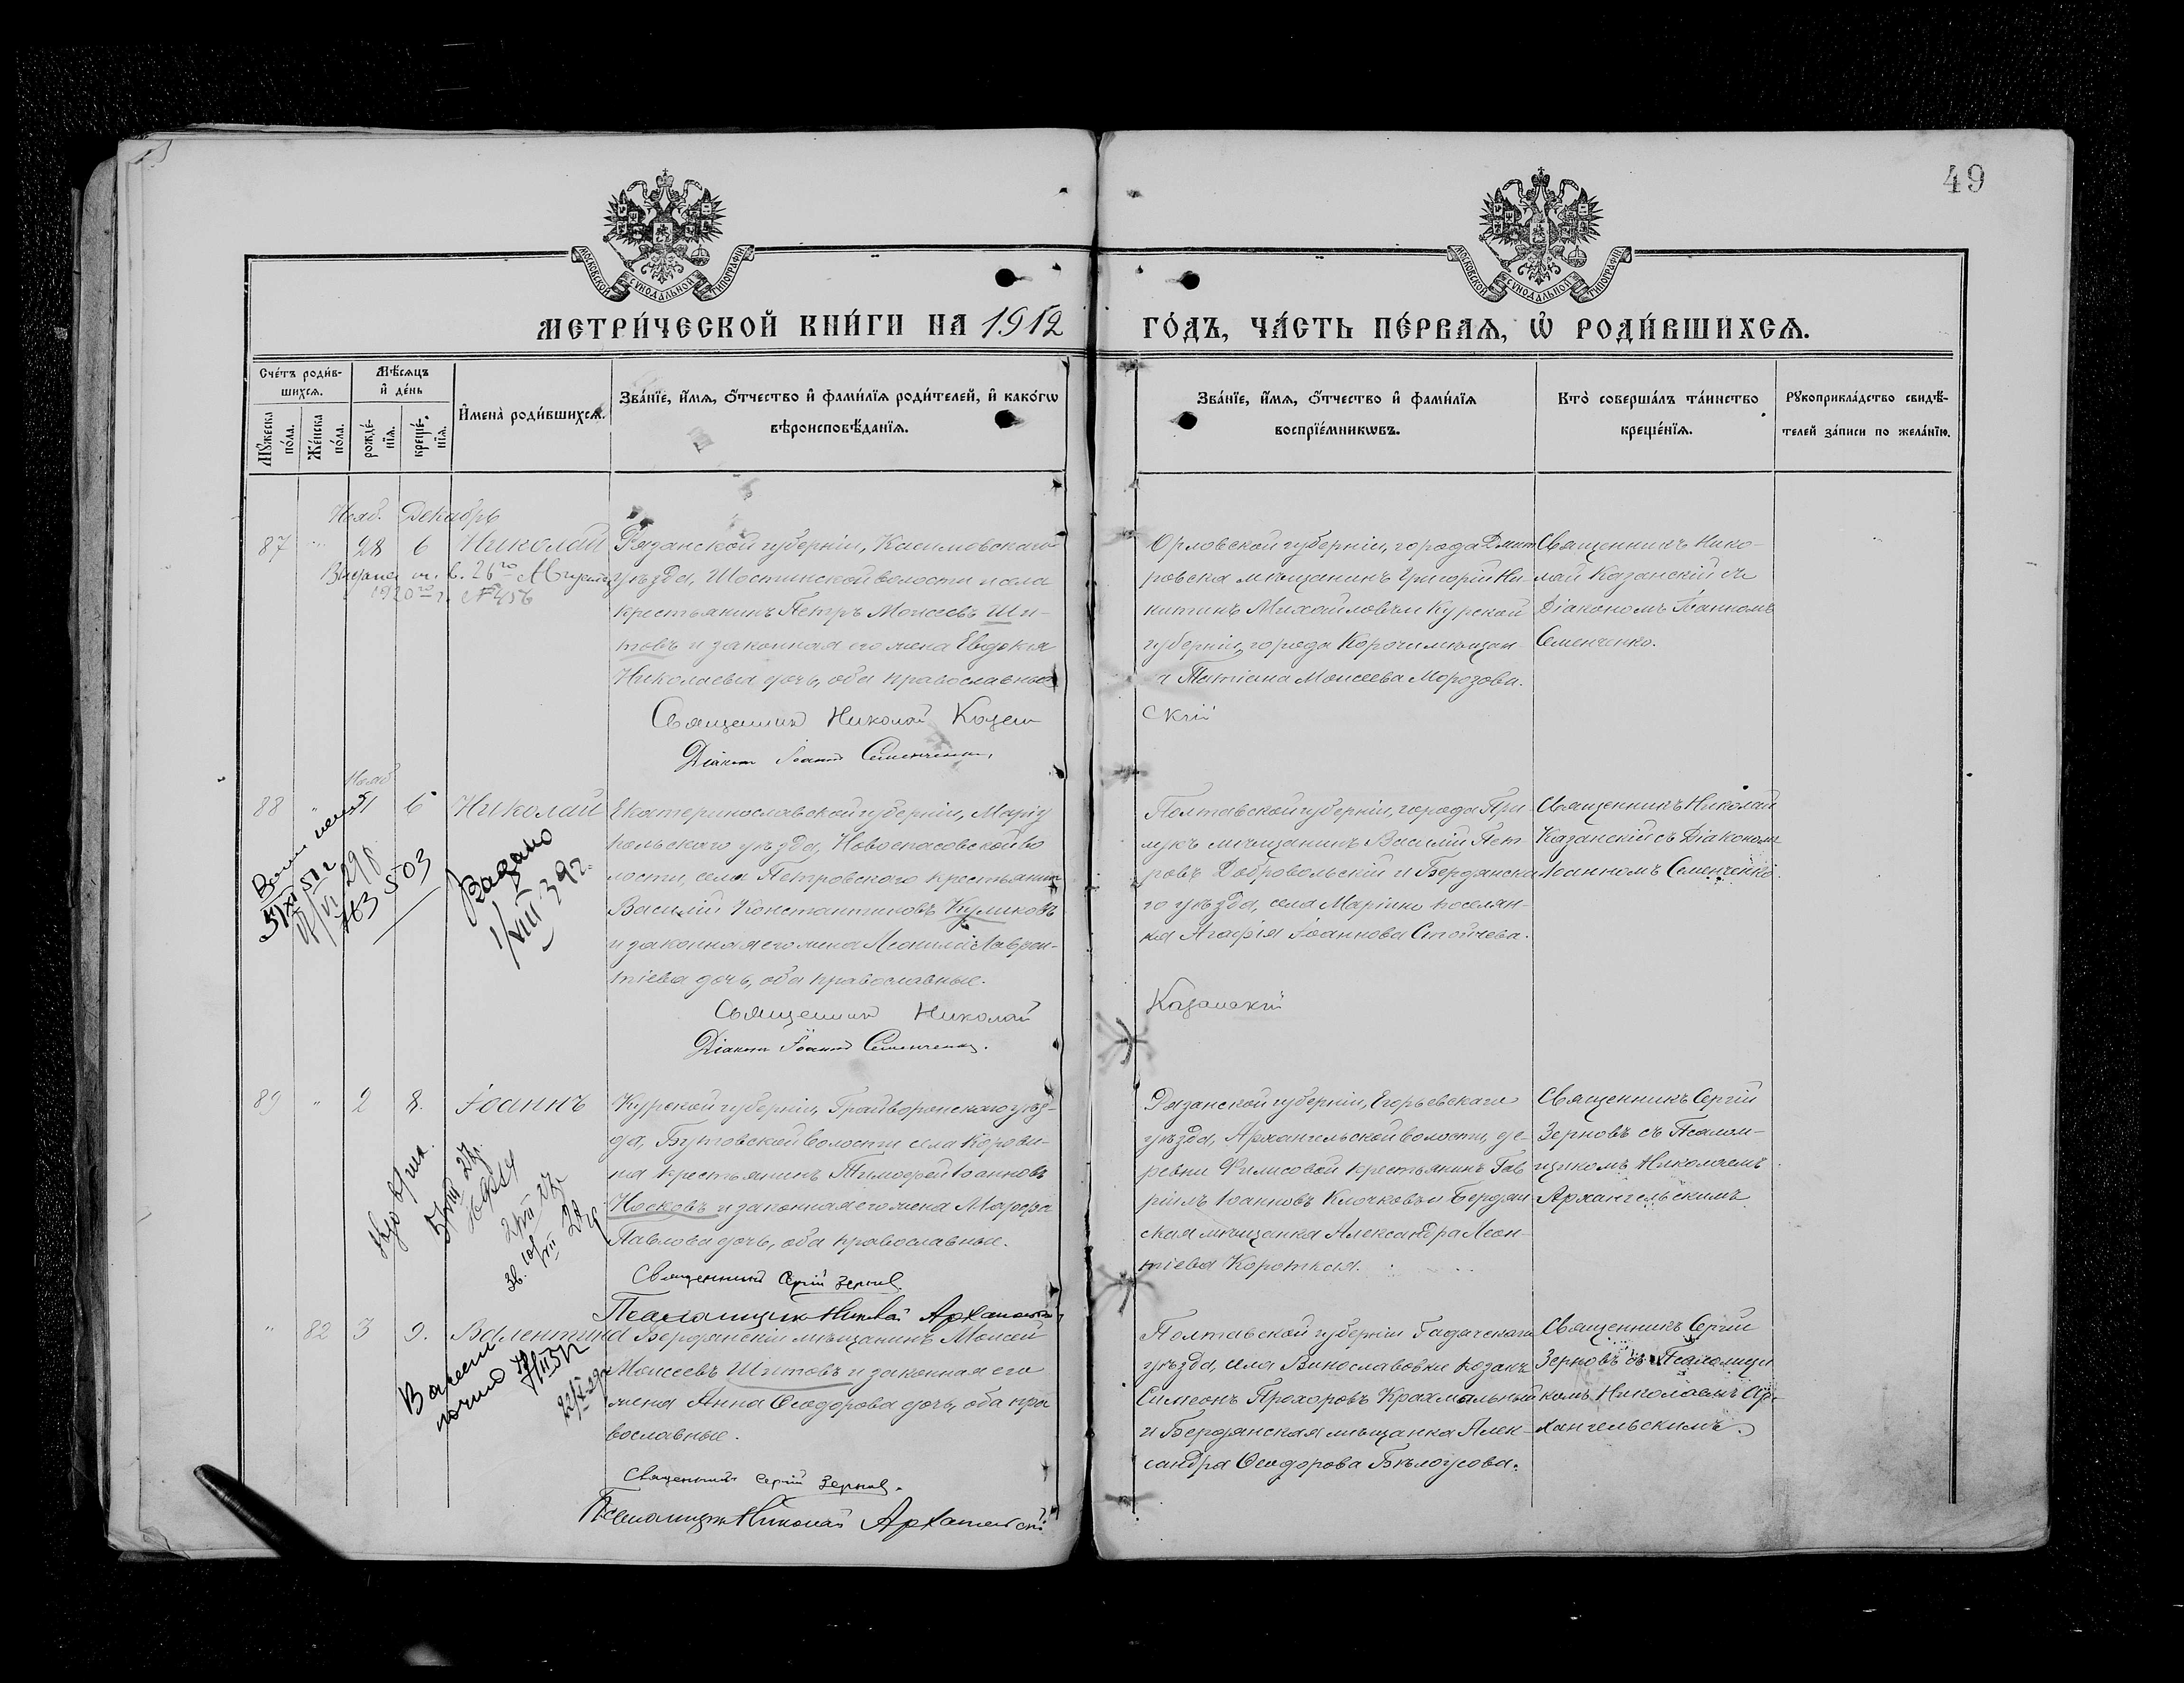 49
МОСКОВСКОЙ СУНОДАЛЬНОЙ ТИПОГРАФІИ
МОСКОВСКОЙ СУНОДАЛЬНОЙ ТИПОГРАФІИ
МЕТРИ́ЧЕСКОЙ КНИ́ГИ НА 1912
ГО́ДЪ, ЧА́СТЬ ПЕ́РВАѦ, Ѡ҆ РОДИ́ВШИХСѦ.
Сче́тъ роди́вшихсѧ.
Мѹ́жеска по́ла.
Же́нска по́ла.
Мѣ́сѧцъ и҆ де́нь
рожде́нїѧ.
креще́нїѧ.
И҆мена̀ роди́вшихсѧ.
Зва́нїе, и҆́мѧ, ѻ҆́тчество и҆ фами́лїѧ роди́телей, и҆ како́гѡ
вѣроисповѣ́данїѧ.
Зва́нїе, и҆́мѧ, ѻ҆́тчество и҆ фами́лїѧ
воспрїе́мникѡвъ.
Кто̀ соверша́лъ та́инство
креще́нїѧ.
Рѹкоприкла́дство свидѣ́-
телей за́писи по жела́нїю.
Нояб. Декабрь
87 " 28 6 Николай
Выдана м. в. 26го Августа
1920го г. № 456
Рязанской губерніи, Касимовскаго
уѣзда, Шостинской волости и села
крестьянинъ Петръ Моисеевъ Ши-
товъ и законная его жена Евдокія
Николаева дочь, оба православные
Священник Николай Казан
Діакон Іоанн Семенченко.
Орловской губерніи, города Дмит
ровска мѣщанинъ Григорій Ни
китинъ Михайловъ и Курской
губерніи, города Корочи мѣщан
Татіана Моисеева Морозова.
ский
Священникъ Нико-
лай Казанскій съ
Діакономъ Іоанномъ
Семенченко.
Нояб
88 " 6 Николай
503
Выдано
1/VIII 39г.
Екатеринославской губерніи, Маріу
польскаго уѣзда, Новоспасовской во
лости, села Петровскаго крестьянин
Василій Константиновъ Куликовъ
и законная его жена Леонилла Лаврен-
тіева дочь, оба православные.
Священник Николай
Діакон Іоанн Семенченко.
Полтавской губерніи, города При-
лукъ мѣщанинъ Василій Пет
ровъ Добровольскій и Бердянска
го уѣзда, села Маріино поселян-
ка Агафія Іоаннова Стойчева.
Казанскій
Священникъ Николай
Казанскій съ Діакономъ
Іоанномъ Семенченко.
89 " 2 8. Іоаннъ
Курской губерніи, Грайворонскаго уѣз-
да, Бутовской волости села Корови-
на крестьянинъ Тимофей Іоанновъ
Носковъ и законная его жена Марфа
Павлова дочь, оба православные.
Священник Сергій Зернов.
Псаломщик Николай Архангельский
Рязанской губерніи, Егорьевскаго
уѣзда, Архангельской волости, де-
ревни Филисовой крестьянинъ Гав
ріилъ Іоанновъ Клочковъ и Бердян-
ская мѣщанка Александра Леон-
тіева Короткая.
Священникъ Сергій
Зерновъ съ Псалом-
щикомъ Николаемъ
Архангельскимъ
" 82 3 9. Валентина
Бердянскій мѣщанинъ Моисей
Моисеевъ Шитовъ и законная его
жена Анна Ѳеодорова дочь, оба пра
вославные.
Священник Сергій Зернов.
Псаломщик Николай Архангельскій
Полтавской губерніи Гадячскаго
уѣзда, села Винославовки козакъ
Симеонъ Прохоровъ Крахмальный
и Бердянская мѣщанка Алек-
сандра Ѳеодорова Бѣлоусова.
Священникъ Сергій
Зерновъ съ Псаломщи
комъ Николаемъ Ар-
хангельскимъ.